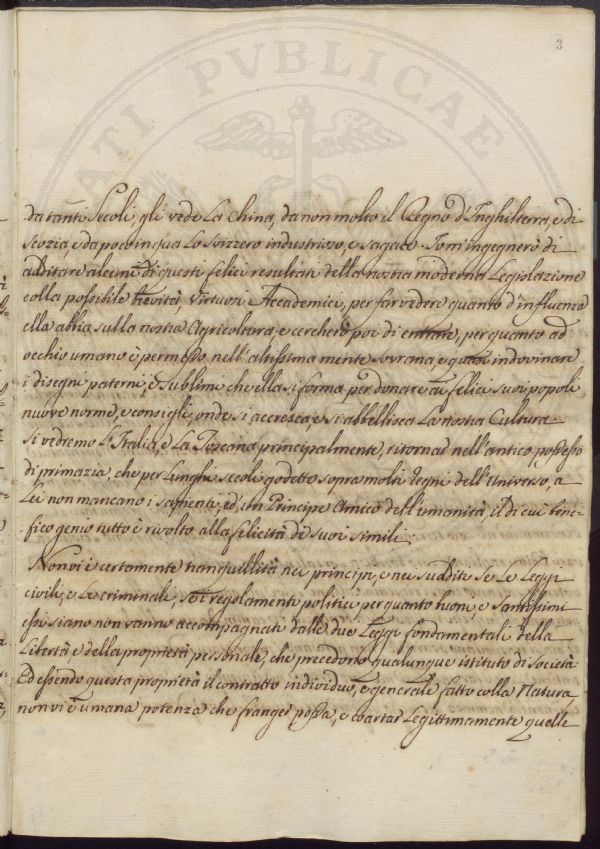 3
ATI PVBLICAE
da tanti Secoli gli vede La China, da non molto il Regno d'Inghilterra, e di
Scozia, e da poco in qua Lo Svizzero industrioso, e sagace. Io m'ingegnerò di
additare alcuni di questi felici resultati della nostra moderna Legislazione
colla possibile brevità, Virtuosi Accademici, per far vedere quanto d'influenza
ella abbia sulla nostra Agricoltura, e cercherò poi di entrare, per quanto ad
occhio umano è permesso nell'altissima mente sovrana, e quasi indovinare
i disegni paterni, e sublimi che ella si forma per donare ai felici suoi popoli
nuove norme, e consigli, onde si accresca e si abbellisca La nostra Cultura.
Si vedremo L'Italia, e La Toscana principalmente, ritornar nell'antico possesso
di primazia, che per Lunghi secoli godette sopra molti regni dell'Universo, a
Lei non mancano i sapienti, ed un Principe Amico dell'umanità, il di cui bene-
fico genio tutto è rivolto alla felicità de' suoi simili.
Non vi è certamente tranquillità nei principi, e nei sudditi se Le Leggi
civili, e Le criminali, se i regolamenti politici per quanto buoni, e Santissimi
essi siano non vanno accompagnati dalle due Leggi fondamentali della
Libertà e della proprietà personale, che precedono qualunque istituto di Società.
Ed essendo questa proprietà il contratto individuo, e generale fatto colla Natura,
non vi è umana potenza che franger possa, e coartar Legittimamente quelle